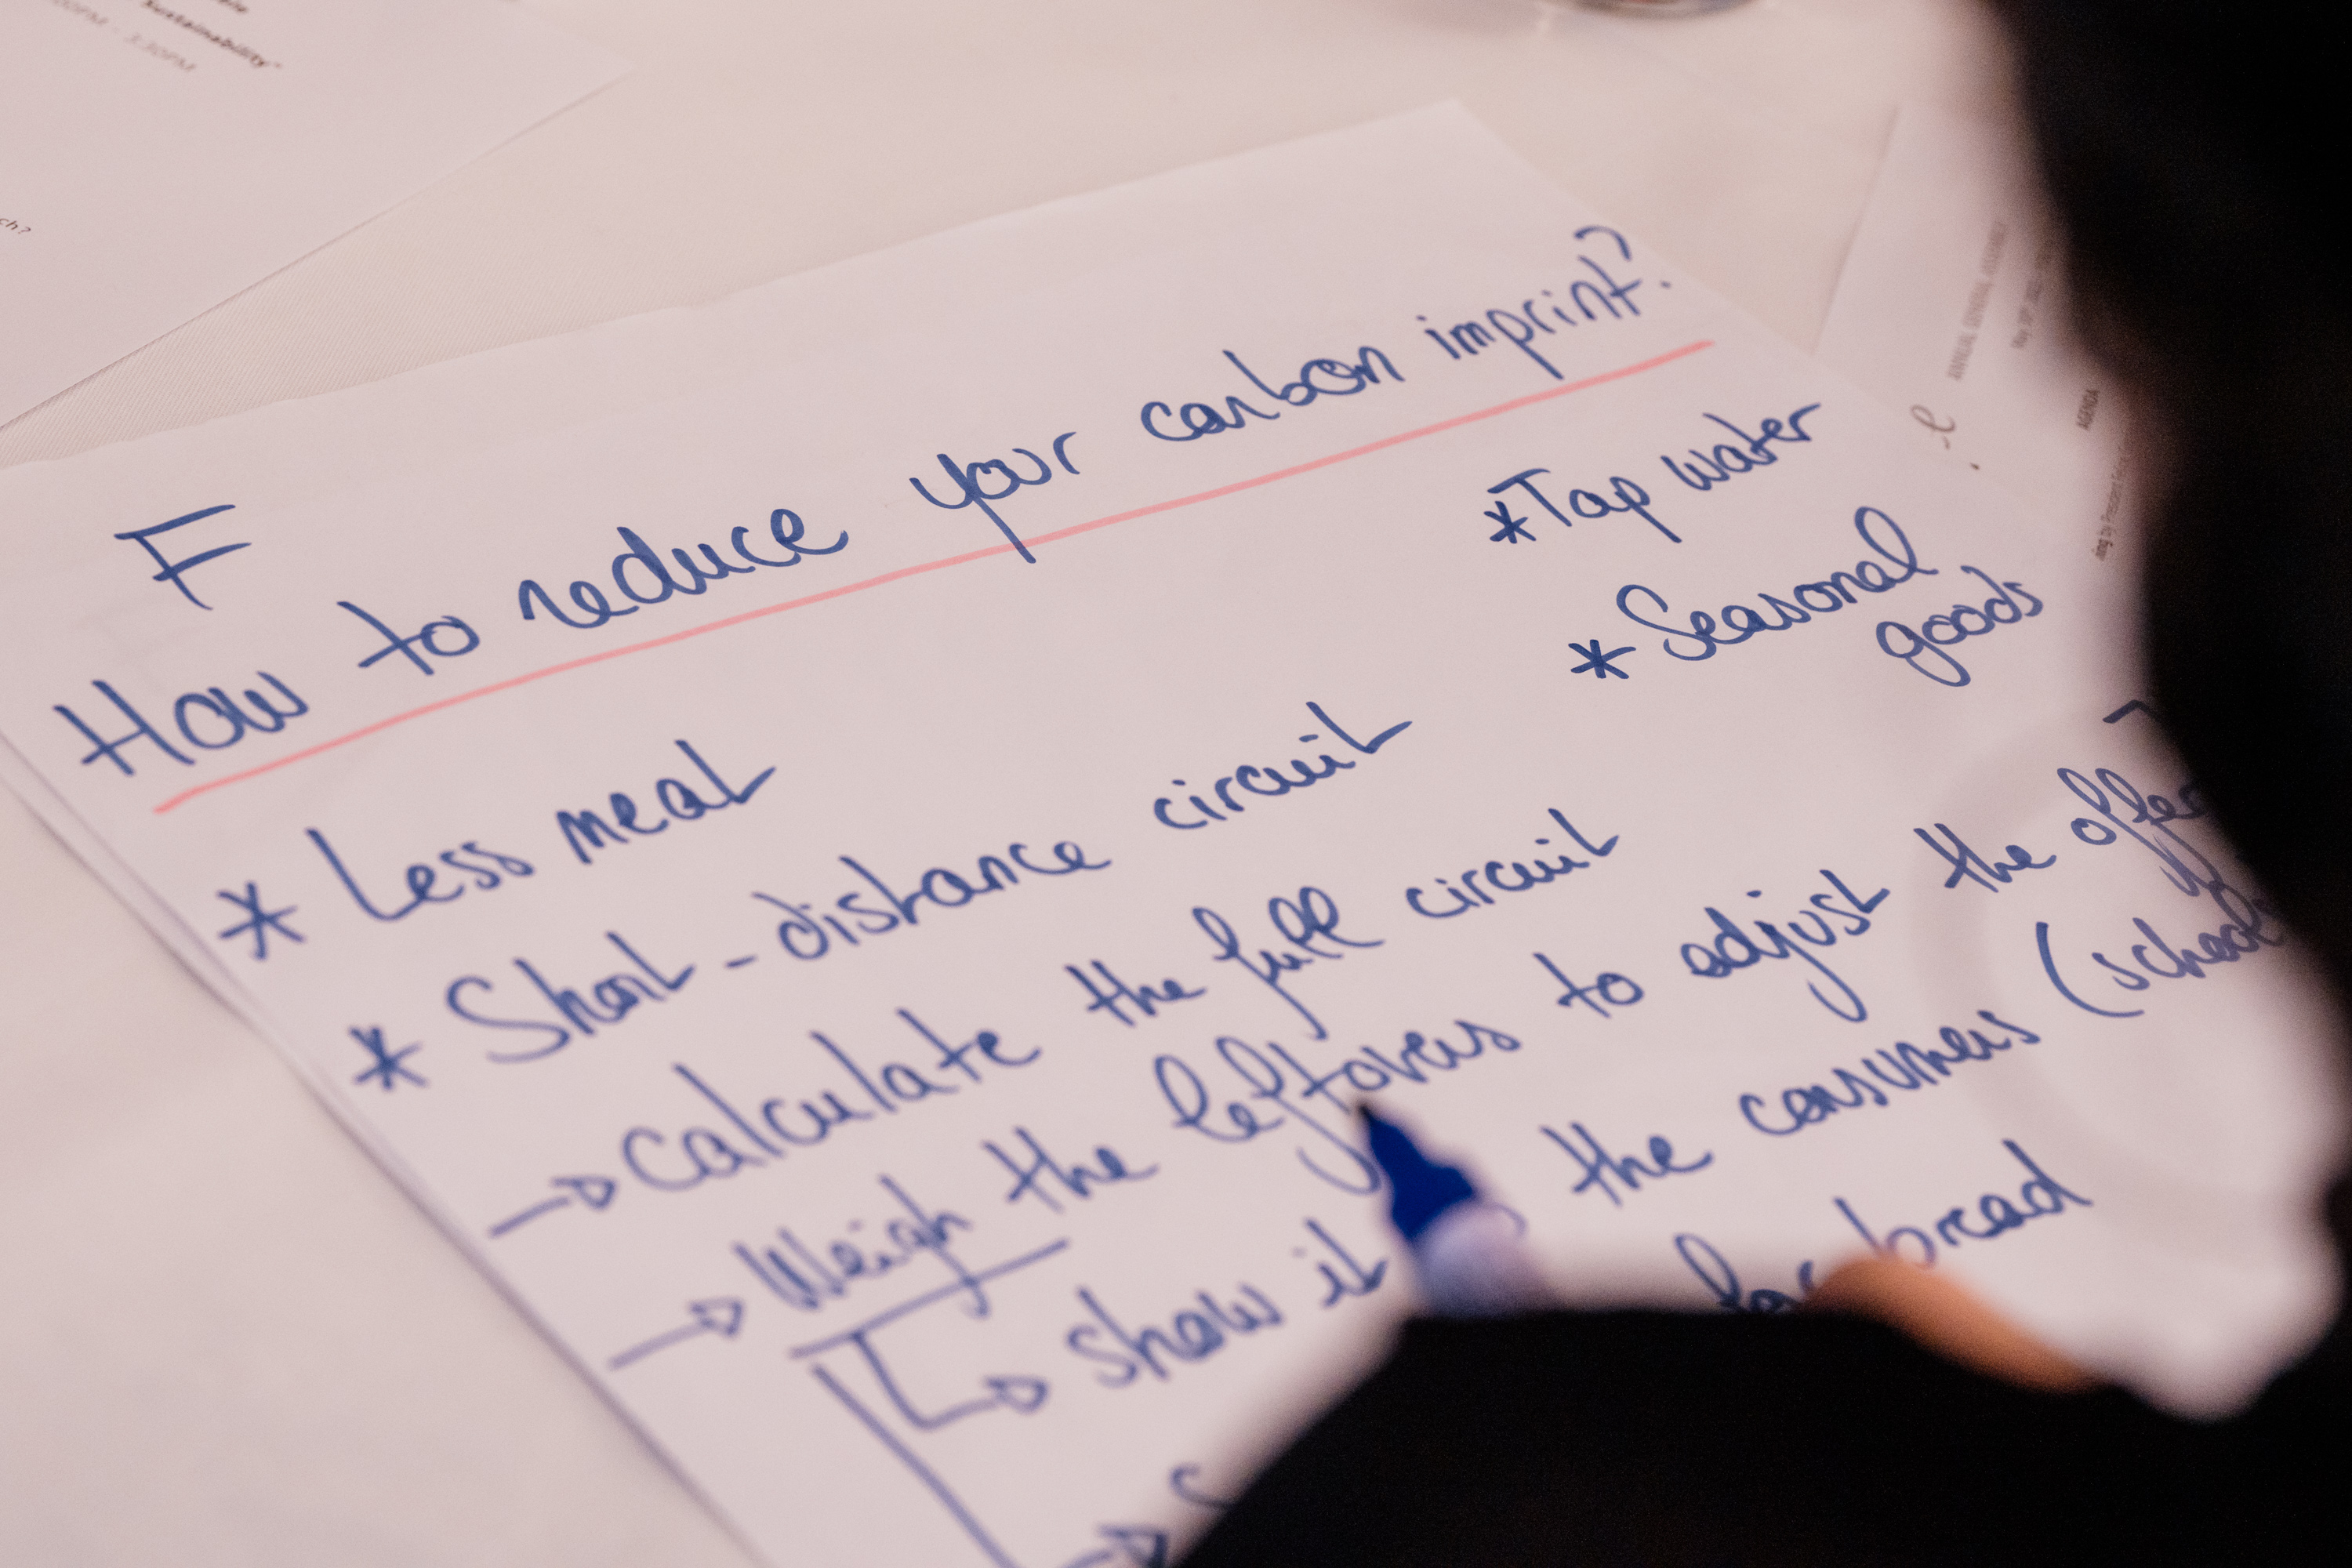 Sustainability"
- 3:30PM
ch?
ANNUAL GENERAL ASSEMBLY
AGENDA
F
How to reduce your carbon imprint?
* Less meat
* Tap water
* Seasonal
goods
* Short-distance circuit
→ Calculate the full circuit
→ Weigh the leftovers to adjust the offer
→ show it the consumers (school
for bread